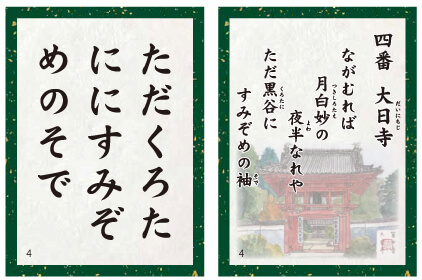 四番 大日寺
だいにちじ
ながむれば
月白妙の
つきしろたえ
夜半なれや
よわ
ただ黒谷に
くろたに
すみぞめの袖
そで
4
ただくろた
ににすみぞ
めのそで
4